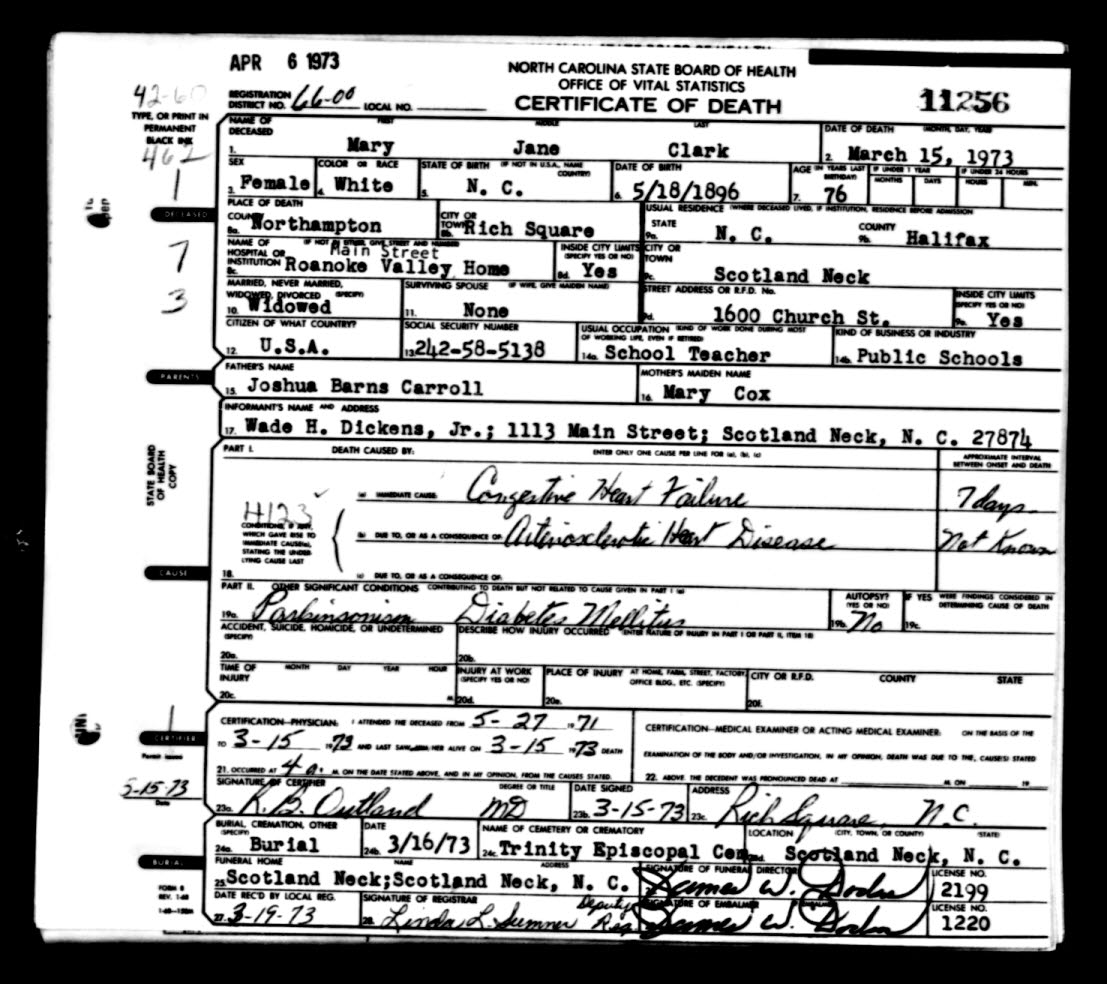 APR 6 1973
NORTH CAROLINA STATE BOARD OF HEALTH
OFFICE OF VITAL STATISTICS
CERTIFICATE OF DEATH
11256
42-60
REGISTRATION DISTRICT NO. 66-00 LOCAL NO.
TYPE, OR PRINT IN PERMANENT BLACK INK
462
1
7
3
NAME OF DECEASED FIRST MIDDLE LAST
1. Mary Jane Clark
DATE OF DEATH (MONTH, DAY, YEAR)
2. March 15, 1973
SEX
3. Female
COLOR OR RACE
4. White
STATE OF BIRTH (IF NOT IN U.S.A., NAME COUNTRY)
5. N. C.
DATE OF BIRTH
6. 5/18/1896
AGE (IN YEARS LAST BIRTHDAY) IF UNDER 1 YEAR MONTHS DAYS IF UNDER 24 HOURS HOURS MIN.
7. 76
DECEASED
PLACE OF DEATH
COUNTY
8a. Northampton
CITY OR TOWN
8b. Rich Square
USUAL RESIDENCE (WHERE DECEASED LIVED, IF INSTITUTION, RESIDENCE BEFORE ADMISSION
STATE
9a. N. C.
COUNTY
9b. Halifax
NAME OF HOSPITAL OR INSTITUTION (IF NOT IN EITHER, GIVE STREET AND NUMBER
Main Street
8c. Roanoke Valley Home
INSIDE CITY LIMITS (SPECIFY YES OR NO)
8d. Yes
CITY OR TOWN
9c. Scotland Neck
MARRIED, NEVER MARRIED, WIDOWED, DIVORCED (SPECIFY)
10. Widowed
SURVIVING SPOUSE (IF WIFE, GIVE MAIDEN NAME)
11. None
STREET ADDRESS OR R.F.D. No.
9d. 1600 Church St.
INSIDE CITY LIMITS (SPECIFY YES OR NO)
9e. Yes
CITIZEN OF WHAT COUNTRY?
12. U.S.A.
SOCIAL SECURITY NUMBER
13. 242-58-5138
USUAL OCCUPATION (KIND OF WORK DONE DURING MOST OF WORKING LIFE, EVEN IF RETIRED)
14a. School Teacher
KIND OF BUSINESS OR INDUSTRY
14b. Public Schools
PARENTS
FATHER'S NAME
15. Joshua Barns Carroll
MOTHER'S MAIDEN NAME
16. Mary Cox
INFORMANT'S NAME AND ADDRESS
17. Wade H. Dickens, Jr.; 1113 Main Street; Scotland Neck, N. C. 27874
STATE BOARD OF HEALTH COPY
PART I. DEATH CAUSED BY: ENTER ONLY ONE CAUSE PER LINE FOR (a), (b), (c)
APPROXIMATE INTERVAL BETWEEN ONSET AND DEATH
(a) IMMEDIATE CAUSE: Congestive Heart Failure 7 days
4123
CONDITIONS, IF ANY, WHICH GAVE RISE TO IMMEDIATE CAUSE(a), STATING THE UNDERLYING CAUSE LAST
(b) DUE TO, OR AS A CONSEQUENCE OF: Arteriosclerotic Heart Disease Not Known
CAUSE
18. (c) DUE TO, OR AS A CONSEQUENCE OF:
PART II. OTHER SIGNIFICANT CONDITIONS CONTRIBUTING TO DEATH BUT NOT RELATED TO CAUSE GIVEN IN PART I (a)
19a. Parkinsonism Diabetes Mellitus
AUTOPSY? (YES OR NO)
19b. No
IF YES WERE FINDINGS CONSIDERED IN DETERMINING CAUSE OF DEATH
19c.
ACCIDENT, SUICIDE, HOMICIDE, OR UNDETERMINED (SPECIFY)
20a.
DESCRIBE HOW INJURY OCCURRED (ENTER NATURE OF INJURY IN PART I OR PART II, ITEM 18)
20b.
TIME OF INJURY MONTH DAY YEAR HOUR
20c. M.
INJURY AT WORK (SPECIFY YES OR NO)
20d.
PLACE OF INJURY AT HOME, FARM, STREET, FACTORY, OFFICE BLDG., ETC. (SPECIFY)
20e.
CITY OR R.F.D. COUNTY STATE
20f.
1
CERTIFIER
5-15-73
Date
CERTIFICATION—PHYSICIAN: I ATTENDED THE DECEASED FROM 5-27 1971
TO 3-15 1973 AND LAST SAW HIM/HER ALIVE ON 3-15 1973 DEATH
21. OCCURRED AT 4 a. M. ON THE DATE STATED ABOVE, AND IN MY OPINION, FROM THE CAUSES STATED.
CERTIFICATION—MEDICAL EXAMINER OR ACTING MEDICAL EXAMINER: ON THE BASIS OF THE
EXAMINATION OF THE BODY AND/OR INVESTIGATION, IN MY OPINION, DEATH WAS DUE TO THE, CAUSE(S) STATED
22. ABOVE. THE DECEDENT WAS PRONOUNCED DEAD AT M. ON 19
SIGNATURE OF CERTIFIER DEGREE OR TITLE
23a. K. B. Outland MD
DATE SIGNED
23b. 3-15-73
ADDRESS
23c. Rich Square, N.C.
BURIAL
BURIAL, CREMATION, OTHER (SPECIFY)
24a. Burial
DATE
24b. 3/16/73
NAME OF CEMETERY OR CREMATORY
24c. Trinity Episcopal Cem.
LOCATION (CITY, TOWN, OR COUNTY) (STATE)
24d. Scotland Neck, N. C.
FUNERAL HOME NAME ADDRESS
25. Scotland Neck;Scotland Neck, N. C.
SIGNATURE OF FUNERAL DIRECTOR
James W.
LICENSE NO.
2199
FORM 8
REV. 1-68
DATE REC'D BY LOCAL REG.
27. 3-19-73
SIGNATURE OF REGISTRAR
28. Linda L. Sumner Deputy Reg
SIGNATURE OF EMBALMER
James W.
LICENSE NO.
1220